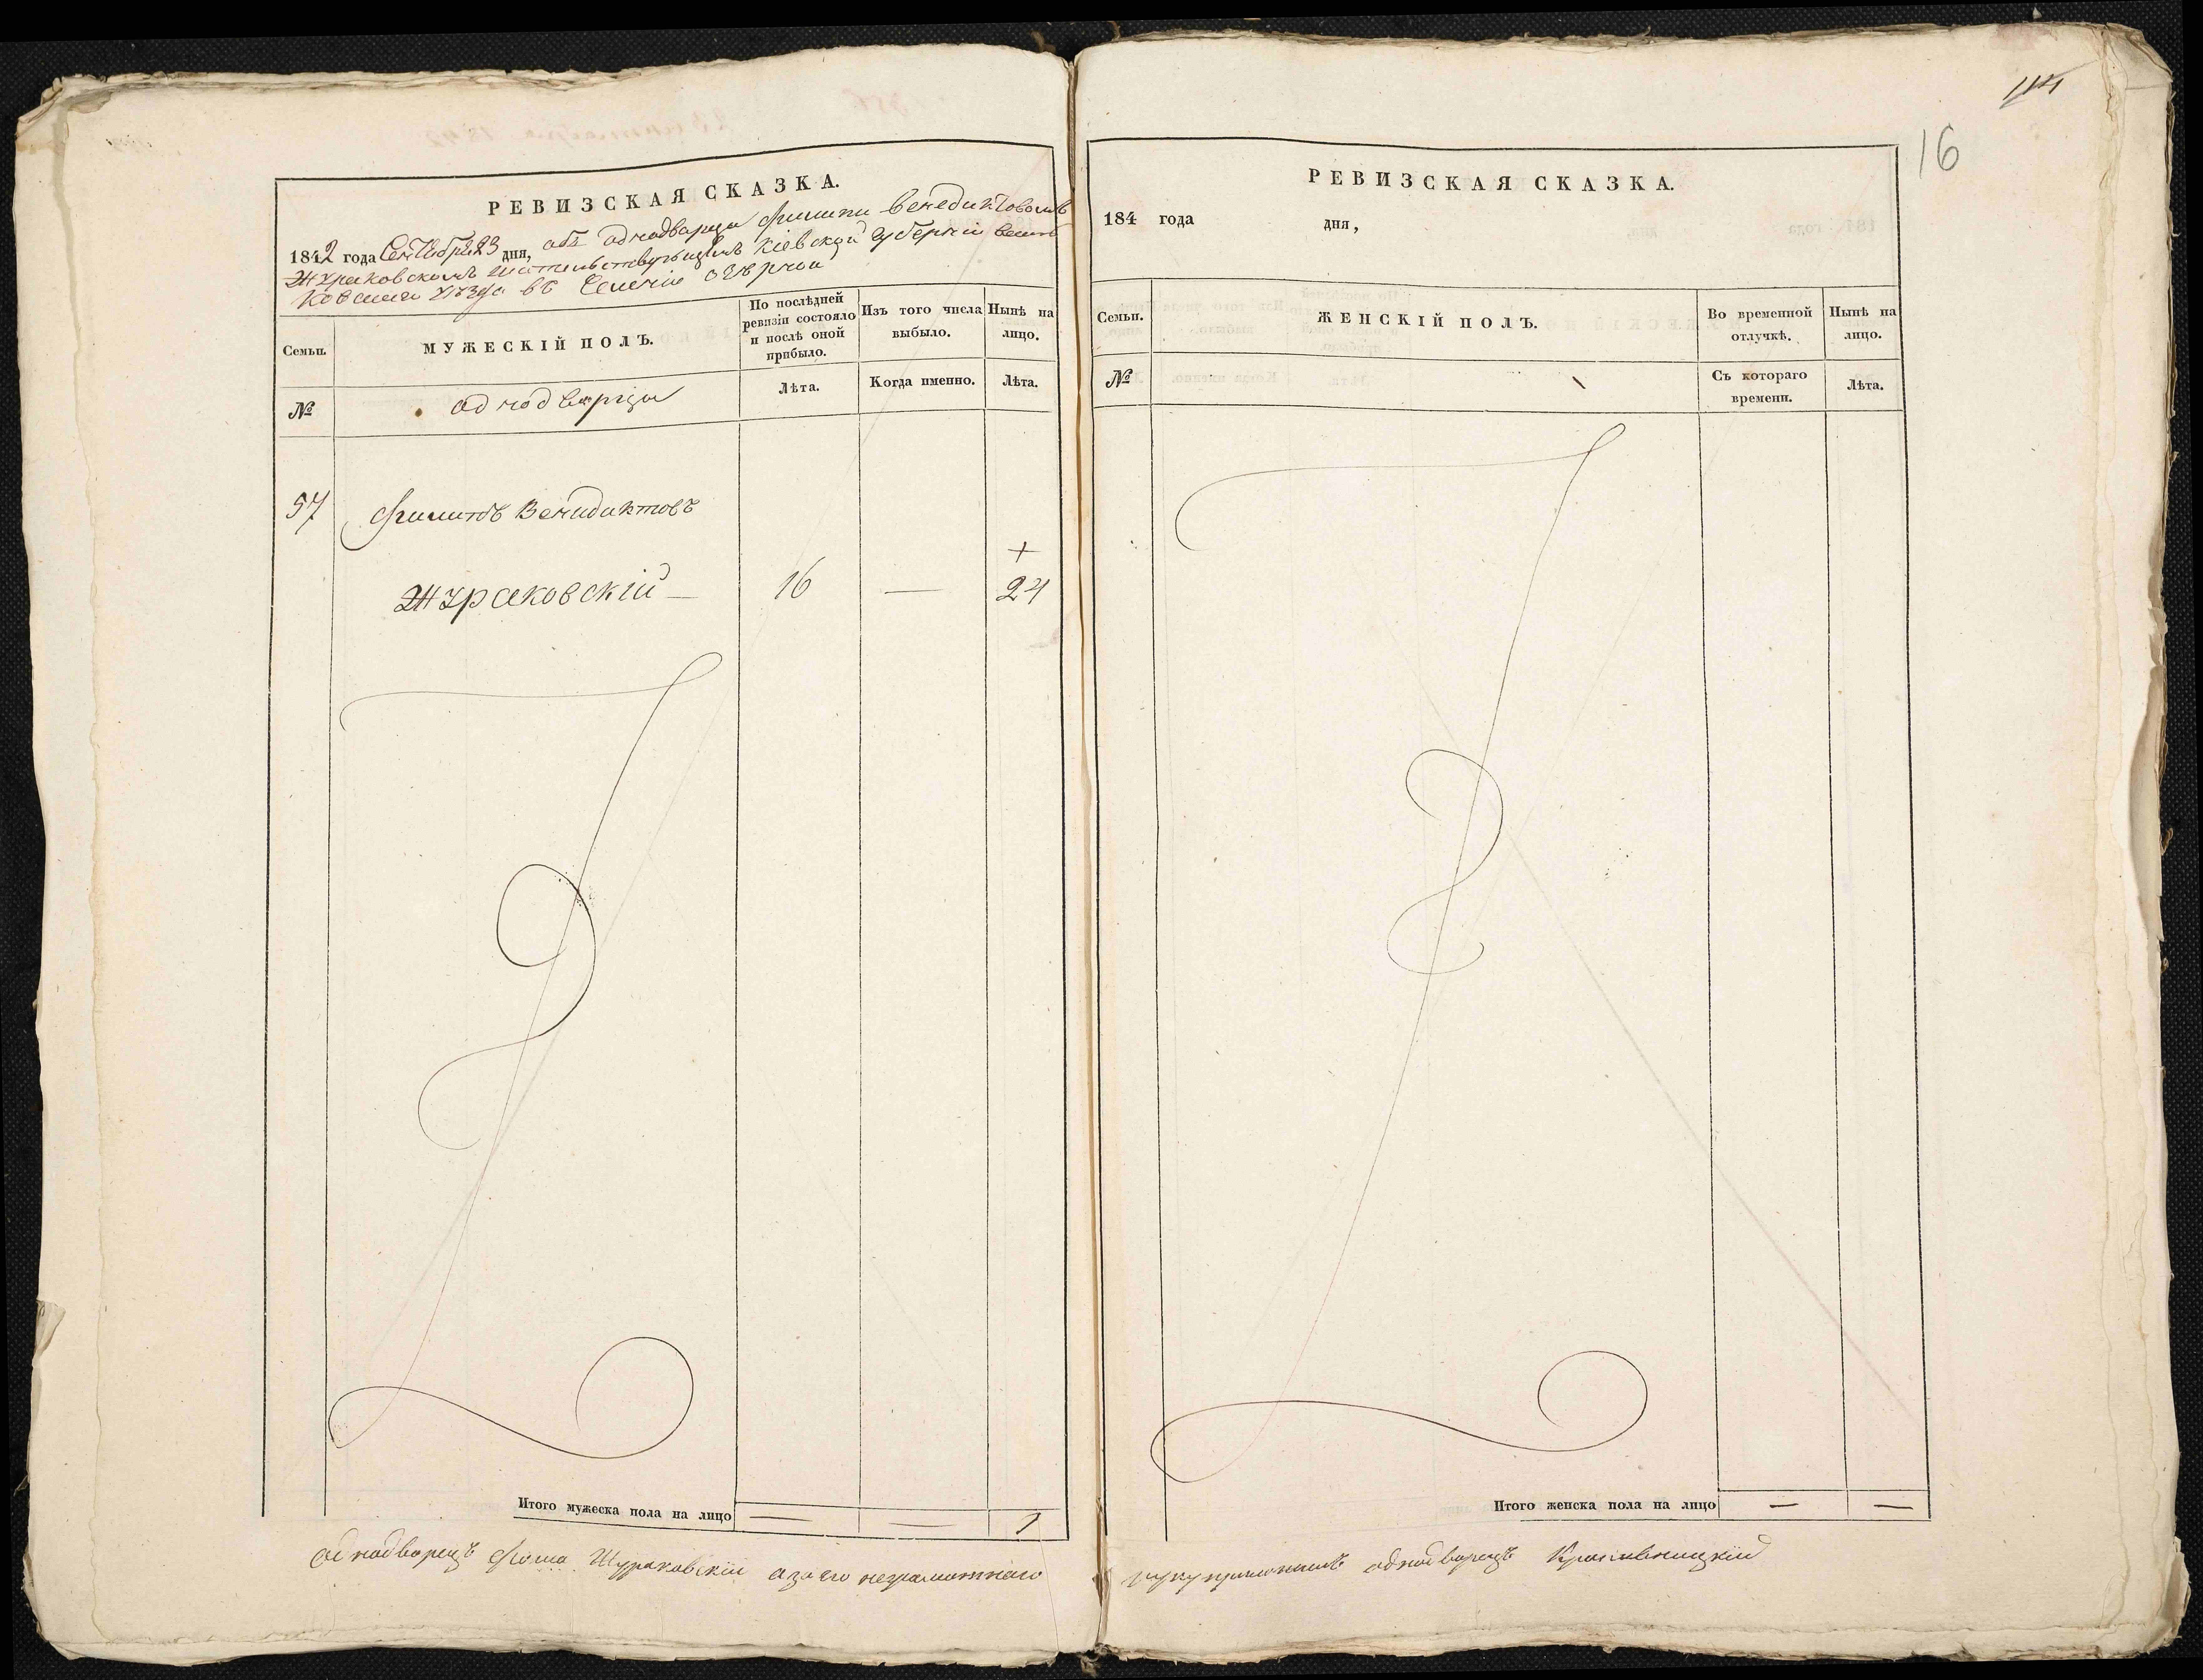 РЕВИЗСКАЯ СКАЗКА.
1842 года Сентября 23 дня, объ однодворцы Филипи Венедиктовомъ
Жураковскомъ жительствующемъ Кіевской губерніи
уѣзда въ Селеніи
Семьи.
МУЖЕСКІЙ ПОЛЪ.
По послѣдней ревизіи состояло и послѣ оной прибыло.
Изъ того числа выбыло.
Нынѣ на лицо.
№
однодворцы
Лѣта.
Когда именно.
Лѣта.
57 Филипъ Венидиктовъ
+
Жураковскій — 16 — 24
Итого мужеска пола на лицо — — 1
однодворецъ Жураковскій а за его неграмотнаго
114
16
РЕВИЗСКАЯ СКАЗКА.
184 года дня,
Семьи.
ЖЕНСКІЙ ПОЛЪ.
Во временной отлучкѣ.
Нынѣ на лицо.
№
Съ котораго времени.
Лѣта.
Итого женска пола на лицо — —
однодворецъ